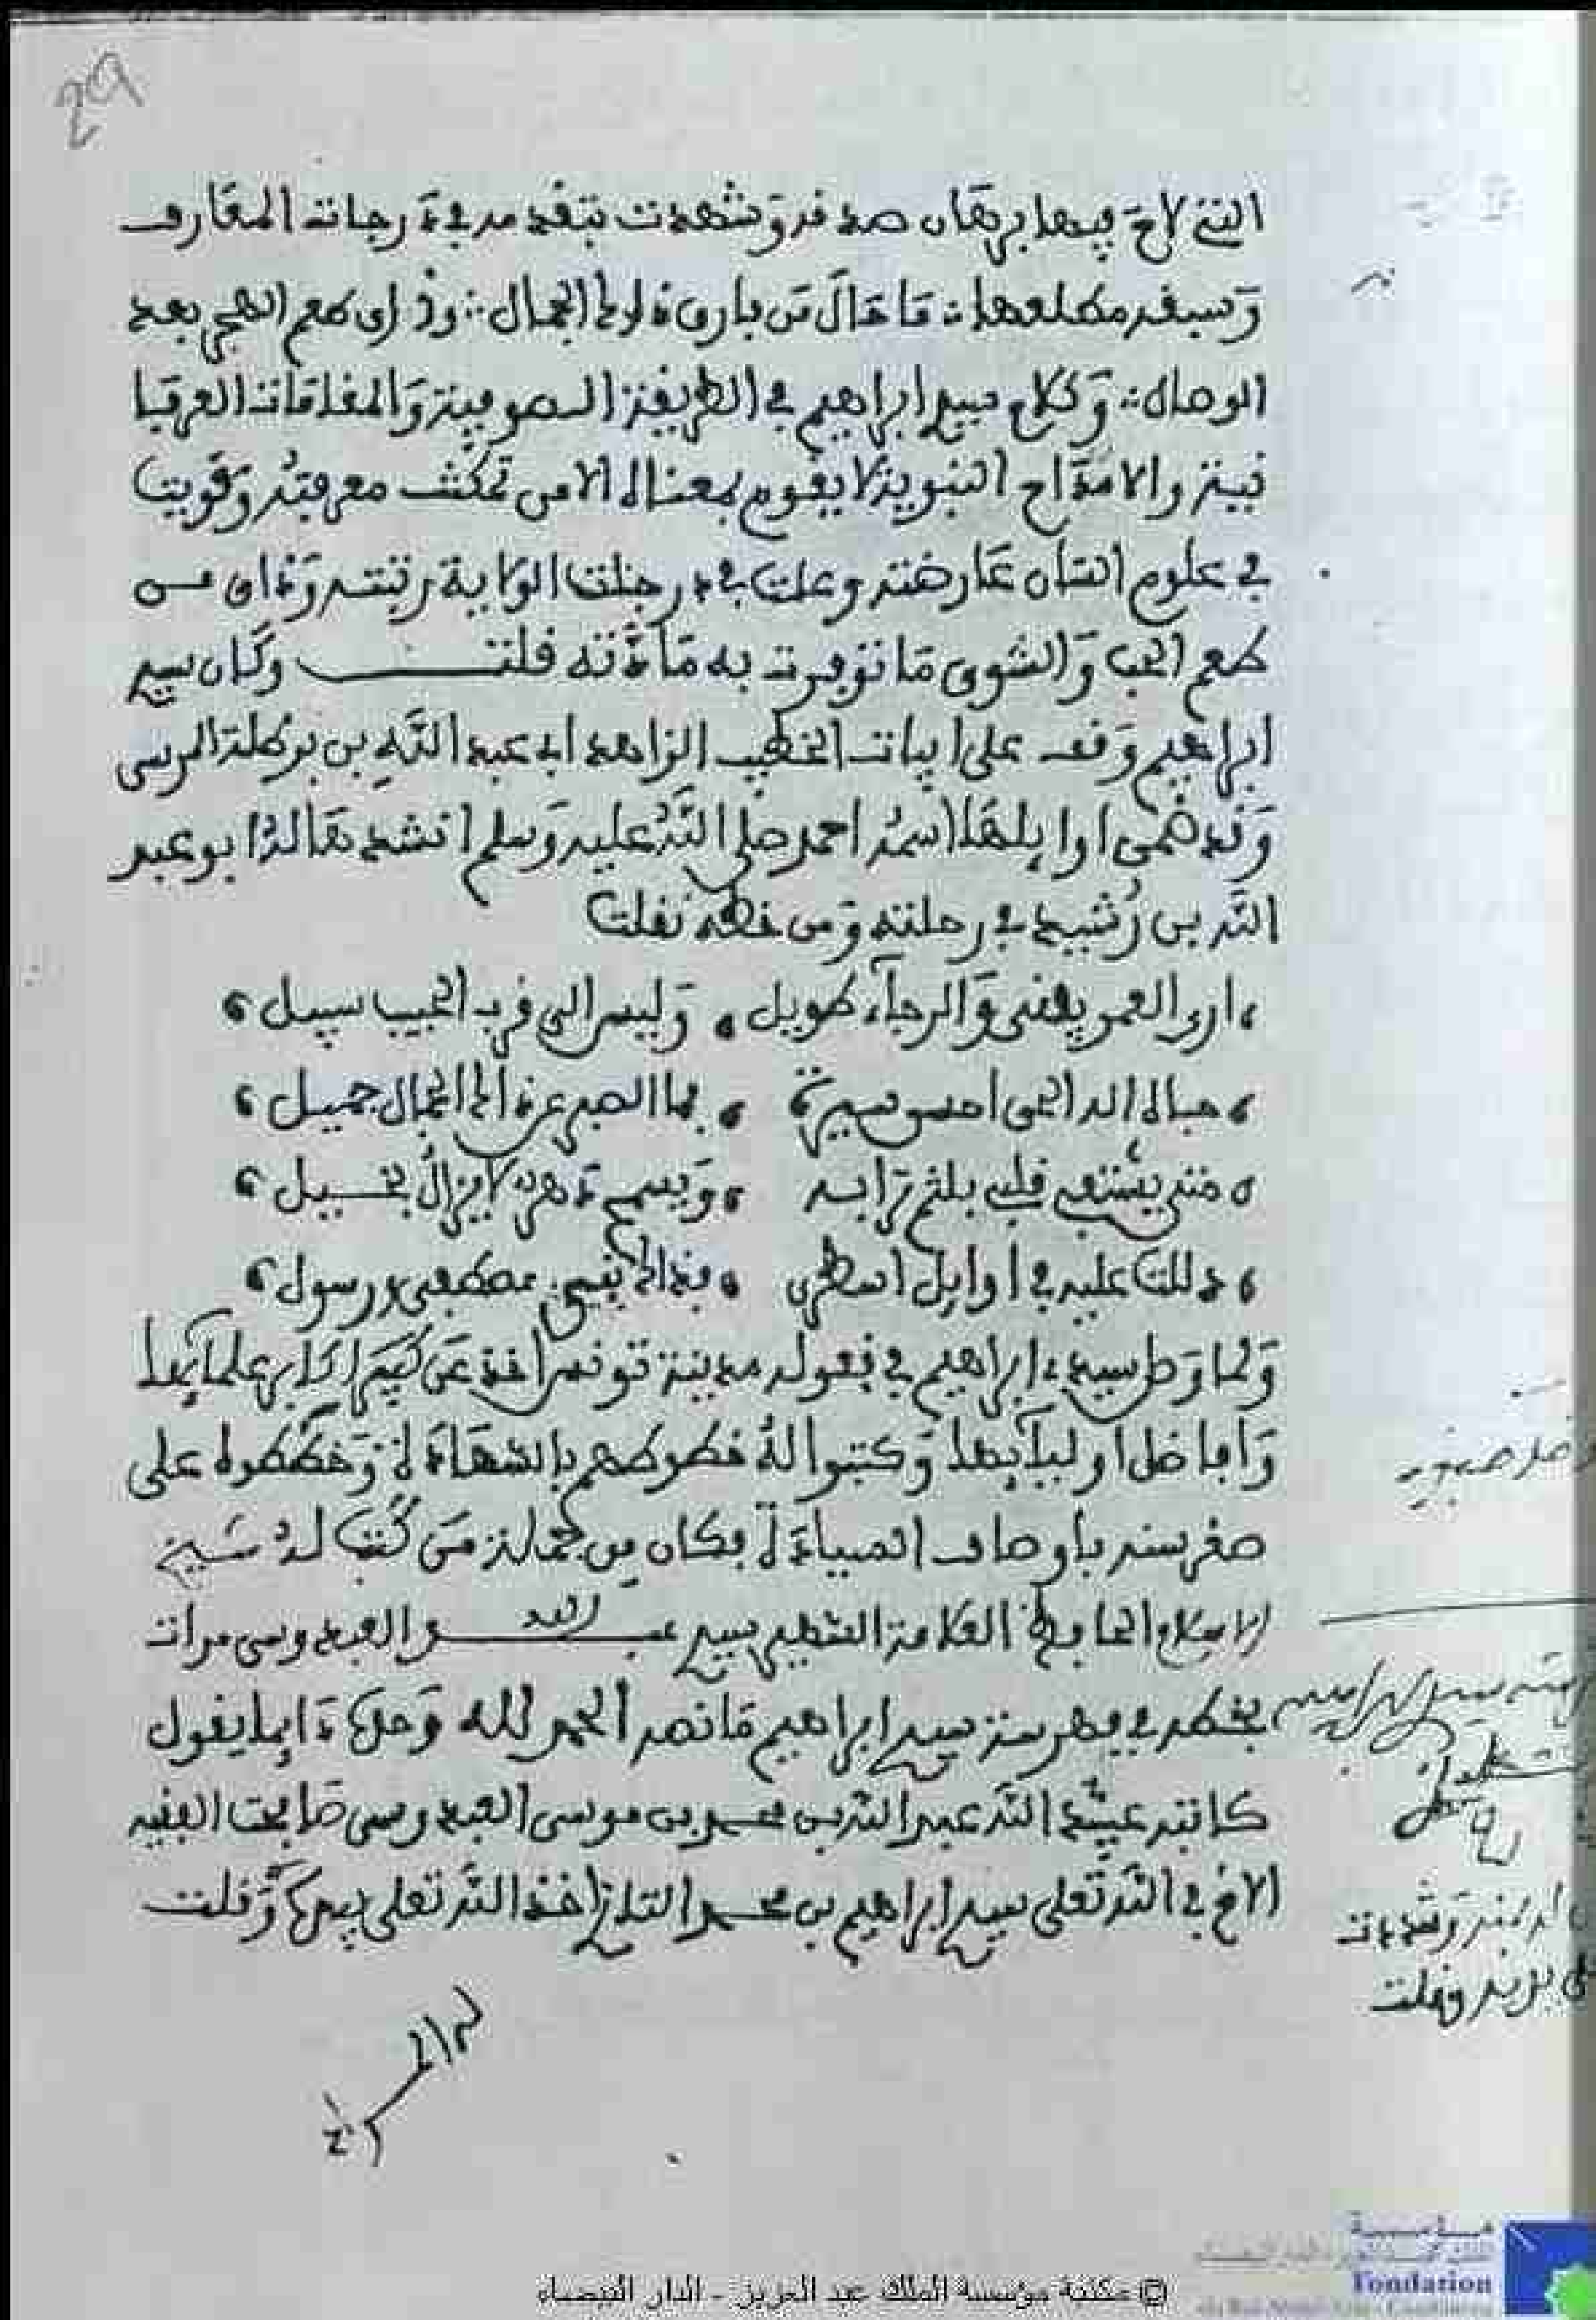 التي لاح فيها برهان صدقه وشهدت بتقدمه في درجات المعارف
وسبقه مطلعها: ما حال من فارق ذاك الجمال: وذاق طعم الهجر بعد
الوصال: وكلام سيدي ابراهيم في الطريقة الصوفية والمقامات العرفا
نية والامداح النبوية لا يقوم بمعناه الا من تمكنت معرفته وقويت
في علوم اللسان عارضته وعلت في درجات الولاية رتبته وذاق من
طعم الحب والشوق ما توفرت به مادته قلت وكان سيدي
ابراهيم وقف على ابيات الخطيب الزاهد ابي عبد الله بن برطلة المرسي
وقد ضمن اوايلها اسمه احمد صلى الله عليه وسلم انشدها له ابو عبد
الله بن رشيد في رحلته ومن خطه نقلت
ارى العمر يفنى والرجاء طويل وليس الى قرب الحبيب سبيل
حباه اله الخلق احسن سيرة فما الصبر عن ذاك الجمال جميل
متى يشتفي قلبي بلثم ترابه ويسمح دهر لا يزال بخيل
دللت عليه في اوايل اسطري فذاك نبي مصطفى ورسول
ولما وصل سيدي ابراهيم في قفوله مدينة تونس اخذ عن كثير اكابر علمائها
وافاضل اوليائها وكتبوا له خطوطهم بالشهادة له وخططوه على
صغر سنه باوصاف السيادة فكان من جملة من كتب له شيخ
الاسلام الحافظ العلامة الشهير سيدي عبد الله العبدوسي قرات
بخطه في فهرسة سيدي ابراهيم ما نصه الحمد لله وحده دايما يقول
كاتبه عبيد الله عبد الله بن محمد بن موسى العبدوسي صافحت الفقيه
الاخ في الله تعلى سيدي ابراهيم بن محمد التازي اخذ الله تعلى بيده وقلت
© مكتبة مؤسسة الملك عبد العزيز - الدار البيضاء
مؤسسة
Fondation